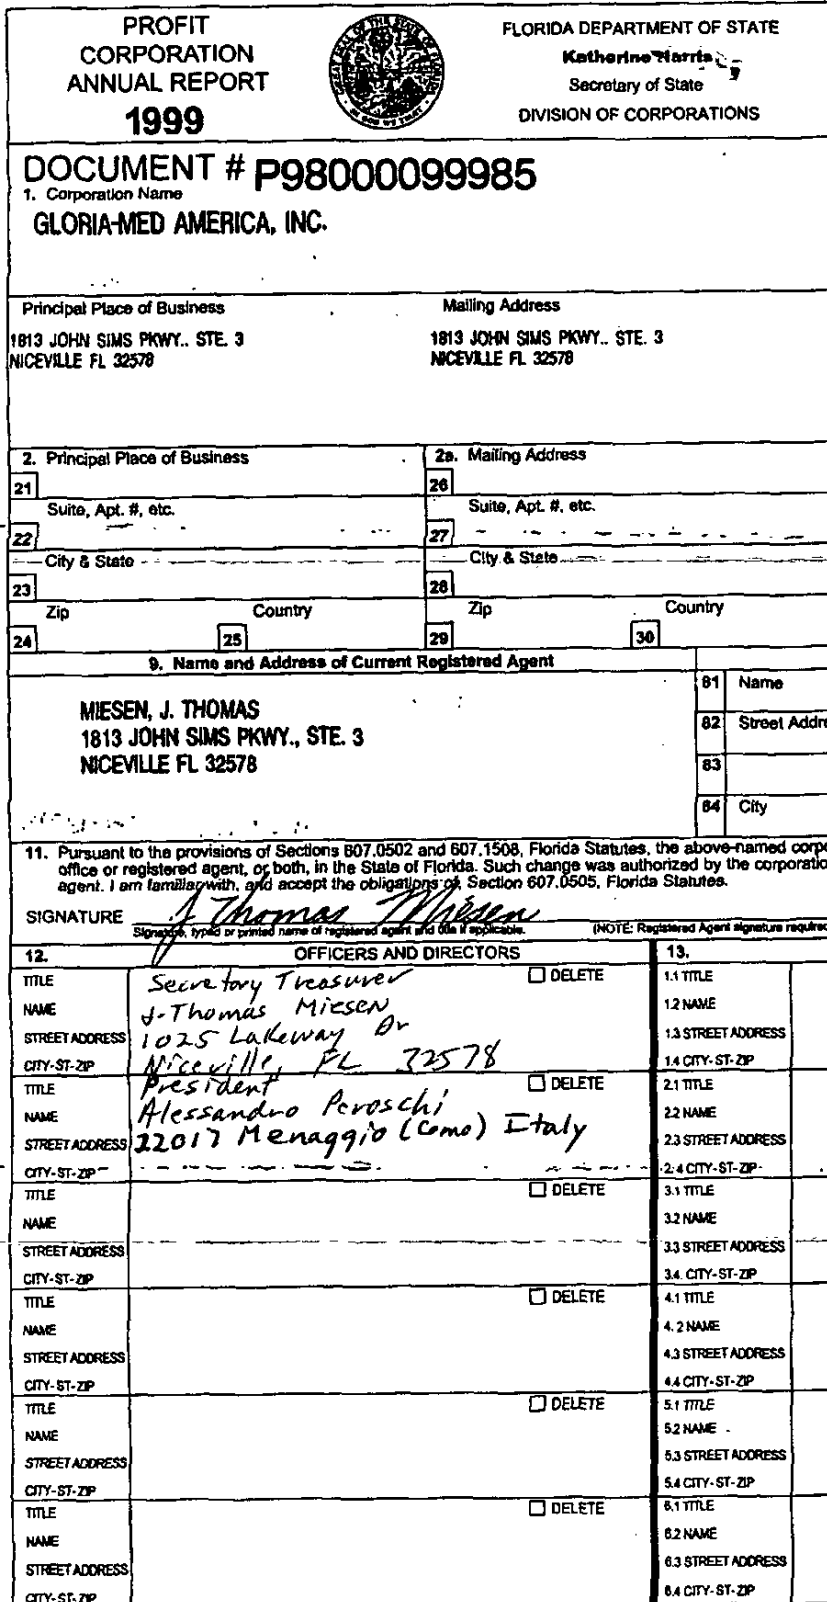 PROFIT
CORPORATION
ANNUAL REPORT
1999
FLORIDA DEPARTMENT OF STATE
Katherine Harris
Secretary of State
DIVISION OF CORPORATIONS
DOCUMENT # P98000099985
1. Corporation Name
GLORIA-MED AMERICA, INC.
Principal Place of Business
Mailing Address
1813 JOHN SIMS PKWY.. STE. 3
NICEVILLE FL 32578
1813 JOHN SIMS PKWY.. STE. 3
NICEVILLE FL 32578
2. Principal Place of Business
2a. Mailing Address
21
26
Suite, Apt. #, etc.
Suite, Apt. #, etc.
22
27
City & State
City & State
23
28
Zip
Country
Zip
Country
24
25
29
30
9. Name and Address of Current Registered Agent
81 Name
MIESEN, J. THOMAS
1813 JOHN SIMS PKWY., STE. 3
NICEVILLE FL 32578
82 Street Addre
83
84 City
11. Pursuant to the provisions of Sections 607.0502 and 607.1508, Florida Statutes, the above-named corpo
office or registered agent, or both, in the State of Florida. Such change was authorized by the corporatio
agent. I am familiar with, and accept the obligations of, Section 607.0505, Florida Statutes.
SIGNATURE J Thomas Miesen
Signature, typed or printed name of registered agent and title if applicable.
(NOTE: Registered Agent signature required
12. OFFICERS AND DIRECTORS
13.
TITLE Secretory Treasurer DELETE
NAME J. Thomas Miesen
STREET ADDRESS 1025 Lakeway Dr
CITY-ST-ZIP Niceville, FL 32578
1.1 TITLE
1.2 NAME
1.3 STREET ADDRESS
1.4 CITY-ST-ZIP
TITLE President DELETE
NAME Alessandro Peroschi
STREET ADDRESS 22017 Menaggio (Como) Italy
CITY-ST-ZIP
2.1 TITLE
2.2 NAME
2.3 STREET ADDRESS
2.4 CITY-ST-ZIP
TITLE DELETE
NAME
STREET ADDRESS
CITY-ST-ZIP
3.1 TITLE
3.2 NAME
3.3 STREET ADDRESS
3.4. CITY-ST-ZIP
TITLE DELETE
NAME
STREET ADDRESS
CITY-ST-ZIP
4.1 TITLE
4.2 NAME
4.3 STREET ADDRESS
4.4 CITY-ST-ZIP
TITLE DELETE
NAME
STREET ADDRESS
CITY-ST-ZIP
5.1 TITLE
5.2 NAME
5.3 STREET ADDRESS
5.4 CITY-ST-ZIP
TITLE DELETE
NAME
STREET ADDRESS
CITY-ST-ZIP
6.1 TITLE
6.2 NAME
6.3 STREET ADDRESS
6.4 CITY-ST-ZIP